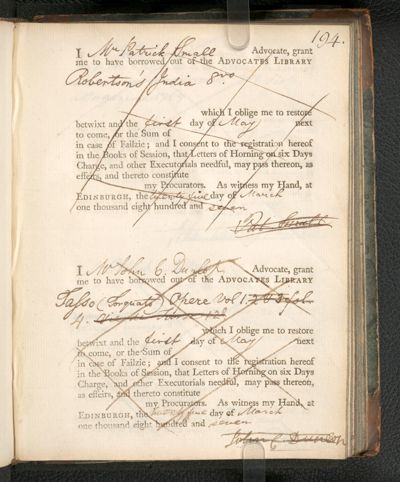 194.
I Mr Patrick Small Advocate, grant
me to have borrowed out of the ADVOCATES LIBRARY
Robertson's India 8vo
which I oblige me to restore
betwixt and the first day of May next
to come, or the Sum of
in case of Failzie; and I consent to the registration hereof
in the Books of Session, that Letters of Horning on six Days
Charge, and other Executorials needful, may pass thereon, as
effeirs, and thereto constitute
my Procurators. As witness my Hand, at
EDINBURGH, the twenty five day of March
one thousand eight hundred and seven
Pat Small
I Mr John C. Dunlop Advocate, grant
me to have borrowed out of the ADVOCATES LIBRARY
Tasso (Torquato) Opere Vol 1. 2 & 3 fol.
4.
which I oblige me to restore
betwixt and the first day of May next
to come, or the Sum of
in case of Failzie; and I consent to the registration hereof
in the Books of Session, that Letters of Horning on six Days
Charge, and other Executorials needful, may pass thereon,
as effeirs, and thereto constitute
my Procurators. As witness my Hand, at
EDINBURGH, the twenty five day of March
one thousand eight hundred and seven
John C Dunlop